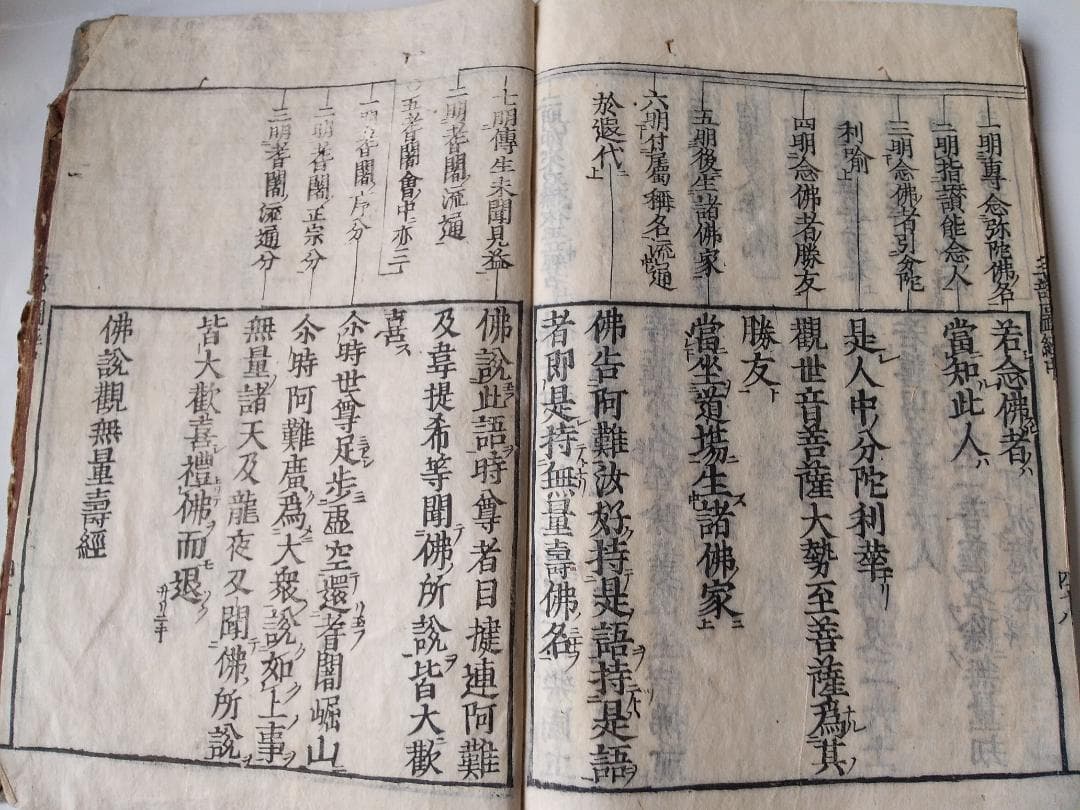 一明專念弥陀佛名
二明指讃能念人
三明念佛者引分陀
利喻上
四明念佛者勝友
五明後生諸佛家
六明付属弥名流通
於遐代
若念佛者
當知此人
是人中分陀利華
觀世音菩薩大勢至菩薩為其
勝友
當坐道場生諸佛家
佛告阿難汝好持是語持是語
者即是持無量壽佛名
七明傳生未聞見益
二明耆闍流通
〇五耆闍會中亦三
一明耆闍序分
二明耆闍正宗分
三明耆闍流通分
佛說此語時尊者目揵連阿難
及韋提希等聞佛所說皆大歡
喜
尒時世尊足步虛空還耆闍崛山
尒時阿難廣為大衆說如上事
無量諸天及龍夜叉聞佛所說
皆大歡喜禮佛而退
佛說觀無量壽經